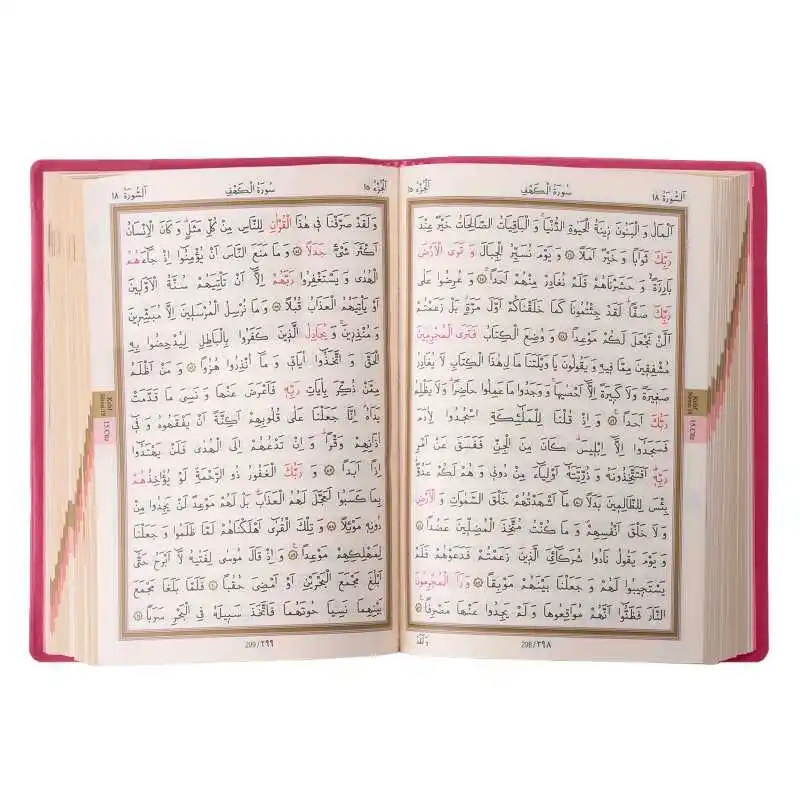 اَلسُّورَةُ ١٨
سُورَةُ الْكَهْفِ
اَلْجُزْءُ ١٥
اَلْمَالُ وَ الْبَنُونَ زِينَةُ الْحَيٰوةِ الدُّنْيَا وَ الْبَاقِيَاتُ الصَّالِحَاتُ خَيْرٌ عِنْدَ
رَبِّكَ ثَوَاباً وَ خَيْرٌ اَمَلاً وَ يَوْمَ نُسَيِّرُ الْجِبَالَ وَ تَرَى الْاَرْضَ
بَارِزَةً وَ حَشَرْنَاهُمْ فَلَمْ نُغَادِرْ مِنْهُمْ اَحَداً وَ عُرِضُوا عَلٰى
رَبِّكَ صَفًّا لَقَدْ جِئْتُمُونَا كَمَا خَلَقْنَاكُمْ اَوَّلَ مَرَّةٍ بَلْ زَعَمْتُمْ
اَلَّنْ نَجْعَلَ لَكُمْ مَوْعِداً وَ وُضِعَ الْكِتَابُ فَتَرَى الْمُجْرِمِينَ
مُشْفِقِينَ مِمَّا فِيهِ وَ يَقُولُونَ يَا وَيْلَتَنَا مَا لِهٰذَا الْكِتَابِ لَا يُغَادِرُ
صَغِيرَةً وَ لَا كَبِيرَةً اِلَّٓا اَحْصٰيهَا وَ وَجَدُوا مَا عَمِلُوا حَاضِراً وَ لَا يَظْلِمُ
رَبُّكَ اَحَداً وَ اِذْ قُلْنَا لِلْمَلٰٓئِكَةِ اسْجُدُوا لِاٰدَمَ
فَسَجَدُٓوا اِلَّٓا اِبْلِيسَ كَانَ مِنَ الْجِنِّ فَفَسَقَ عَنْ اَمْرِ
رَبِّهِ اَفَتَتَّخِذُونَهُ وَ ذُرِّيَّتَهُٓ اَوْلِيَٓاءَ مِنْ دُونِي وَ هُمْ لَكُمْ عَدُوٌّ
بِئْسَ لِلظَّالِمِينَ بَدَلاً مَٓا اَشْهَدْتُهُمْ خَلْقَ السَّمٰوَاتِ وَ الْاَرْضِ
وَ لَا خَلْقَ اَنْفُسِهِمْ وَ مَا كُنْتُ مُتَّخِذَ الْمُضِلِّينَ عَضُداً
وَ يَوْمَ يَقُولُ نَادُوا شُرَكَٓائِيَ الَّذِينَ زَعَمْتُمْ فَدَعَوْهُمْ فَلَمْ
يَسْتَجِيبُوا لَهُمْ وَ جَعَلْنَا بَيْنَهُمْ مَوْبِقاً وَ رَاَ الْمُجْرِمُونَ
النَّارَ فَظَنُّٓوا اَنَّهُمْ مُوَاقِعُوهَا وَ لَمْ يَجِدُوا عَنْهَا مَصْرِفاً
298/٢٩٨
وَ لَقَدْ
Kehf
Sûresi 18
15.Cüz
اَلْجُزْءُ ١٥
سُورَةُ الْكَهْفِ
اَلسُّورَةُ ١٨
وَ لَقَدْ صَرَّفْنَا فِي هٰذَا الْقُرْاٰنِ لِلنَّاسِ مِنْ كُلِّ مَثَلٍ وَ كَانَ الْاِنْسَانُ
اَكْثَرَ شَيْءٍ جَدَلاً وَ مَا مَنَعَ النَّاسَ اَنْ يُؤْمِنُٓوا اِذْ جَٓاءَهُمُ
الْهُدٰى وَ يَسْتَغْفِرُوا رَبَّهُمْ اِلَّٓا اَنْ تَأْتِيَهُمْ سُنَّةُ الْاَوَّلِينَ
اَوْ يَأْتِيَهُمُ الْعَذَابُ قُبُلاً وَ مَا نُرْسِلُ الْمُرْسَلِينَ اِلَّا مُبَشِّرِينَ
وَ مُنْذِرِينَ وَ يُجَادِلُ الَّذِينَ كَفَرُوا بِالْبَاطِلِ لِيُدْحِضُوا بِهِ
الْحَقَّ وَ اتَّخَذُٓوا اٰيَاتِي وَ مَٓا اُنْذِرُوا هُزُواً وَ مَنْ اَظْلَمُ
مِمَّنْ ذُكِّرَ بِاٰيَاتِ رَبِّهِ فَاَعْرَضَ عَنْهَا وَ نَسِيَ مَا قَدَّمَتْ
يَدَاهُ اِنَّا جَعَلْنَا عَلٰى قُلُوبِهِمْ اَكِنَّةً اَنْ يَفْقَهُوهُ وَ فِٓي
اٰذَانِهِمْ وَقْراً وَ اِنْ تَدْعُهُمْ اِلَى الْهُدٰى فَلَنْ يَهْتَدُٓوا
اِذاً اَبَداً وَ رَبُّكَ الْغَفُورُ ذُو الرَّحْمَةِ لَوْ يُؤَاخِذُهُمْ
بِمَا كَسَبُوا لَعَجَّلَ لَهُمُ الْعَذَابَ بَلْ لَهُمْ مَوْعِدٌ لَنْ يَجِدُوا مِنْ
دُونِهِ مَوْئِلاً وَ تِلْكَ الْقُرٰٓى اَهْلَكْنَاهُمْ لَمَّا ظَلَمُوا وَ جَعَلْنَا
لِمَهْلِكِهِمْ مَوْعِداً وَ اِذْ قَالَ مُوسٰى لِفَتٰيهُ لَٓا اَبْرَحُ حَتّٰٓى
اَبْلُغَ مَجْمَعَ الْبَحْرَيْنِ اَوْ اَمْضِيَ حُقُباً فَلَمَّا بَلَغَا مَجْمَعَ
بَيْنِهِمَا نَسِيَا حُوتَهُمَا فَاتَّخَذَ سَبِيلَهُ فِي الْبَحْرِ سَرَباً
299/٢٩٩
Kehf
Sûresi 18
15.Cüz